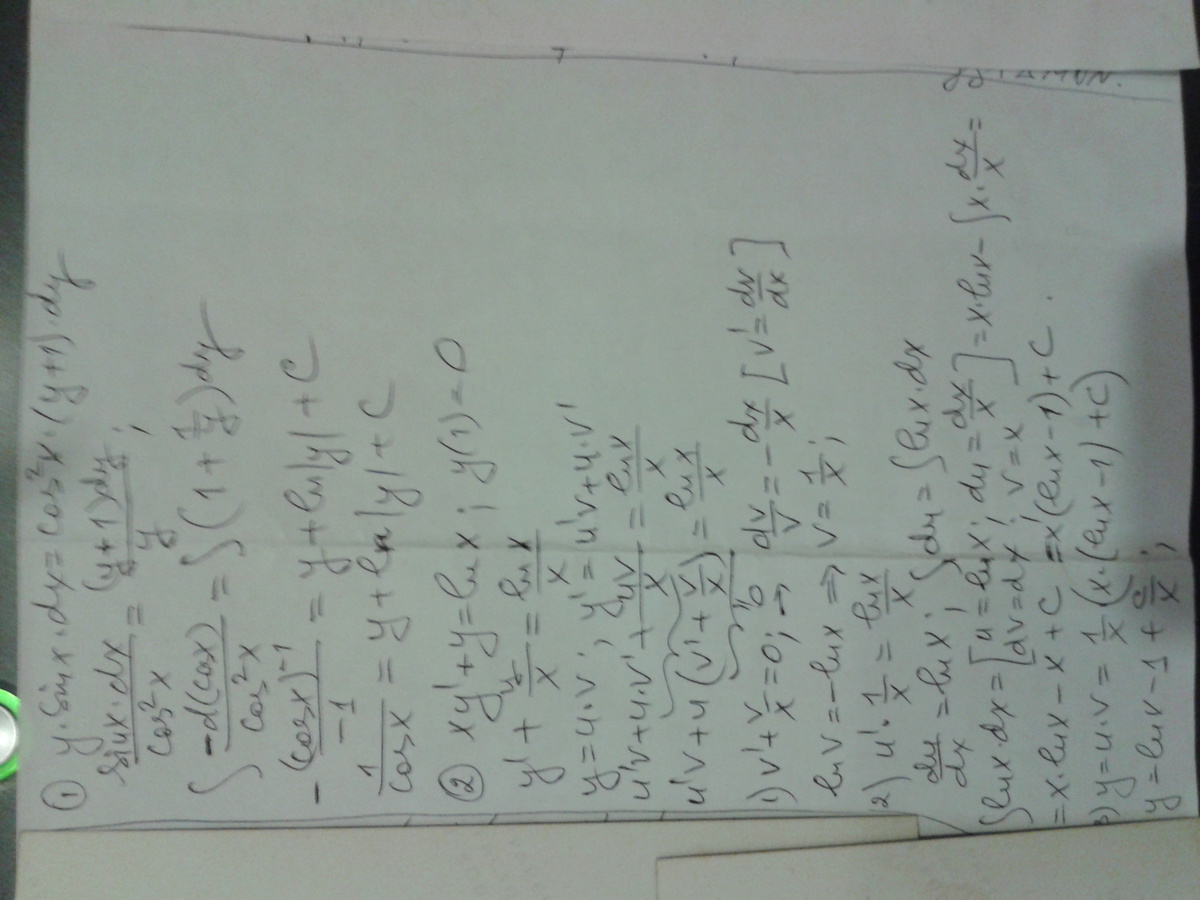 ① y·sinx·dx = cos²x·(y+1)·dy
sinx·dx/cos²x = (y+1)dy/y ;
∫ -d(cosx)/cos²x = ∫(1+1/y)dy
-(cosx)⁻¹/-1 = y+ln|y|+C
1/cosx = y+ln|y|+C
② xy'+y=lnx ; y(1)=0
y' + y/x = lnx/x
y=u·v ; y'=u'v+u·v'
u'v+u·v'+uv/x = lnx/x
u'v+u(v'+v/x) = lnx/x
"0
1) v'+v/x=0; → dv/v = -dx/x [v'=dv/dx]
lnv=-lnx ⇒ v=1/x ;
2) u'·1/x = lnx/x
du/dx = lnx ; ∫du=∫lnx·dx
∫lnx·dx = [u=lnx; du=dx/x dv=dx; v=x] = x·lnx-∫x·dx/x =
= x·lnx-x+C = x(lnx-1)+C.
3) y=u·v = 1/x (x·(lnx-1)+C)
y=lnx-1+C/x ;